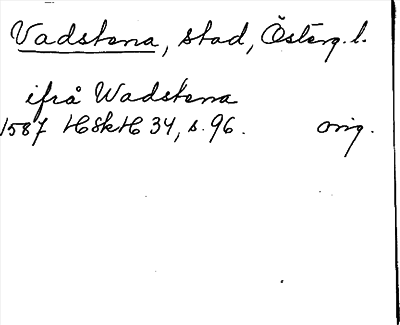 Vadstena, stad, Österg. l.
ifrå Wadstena
1587 HSkH 34, s. 96. orig.